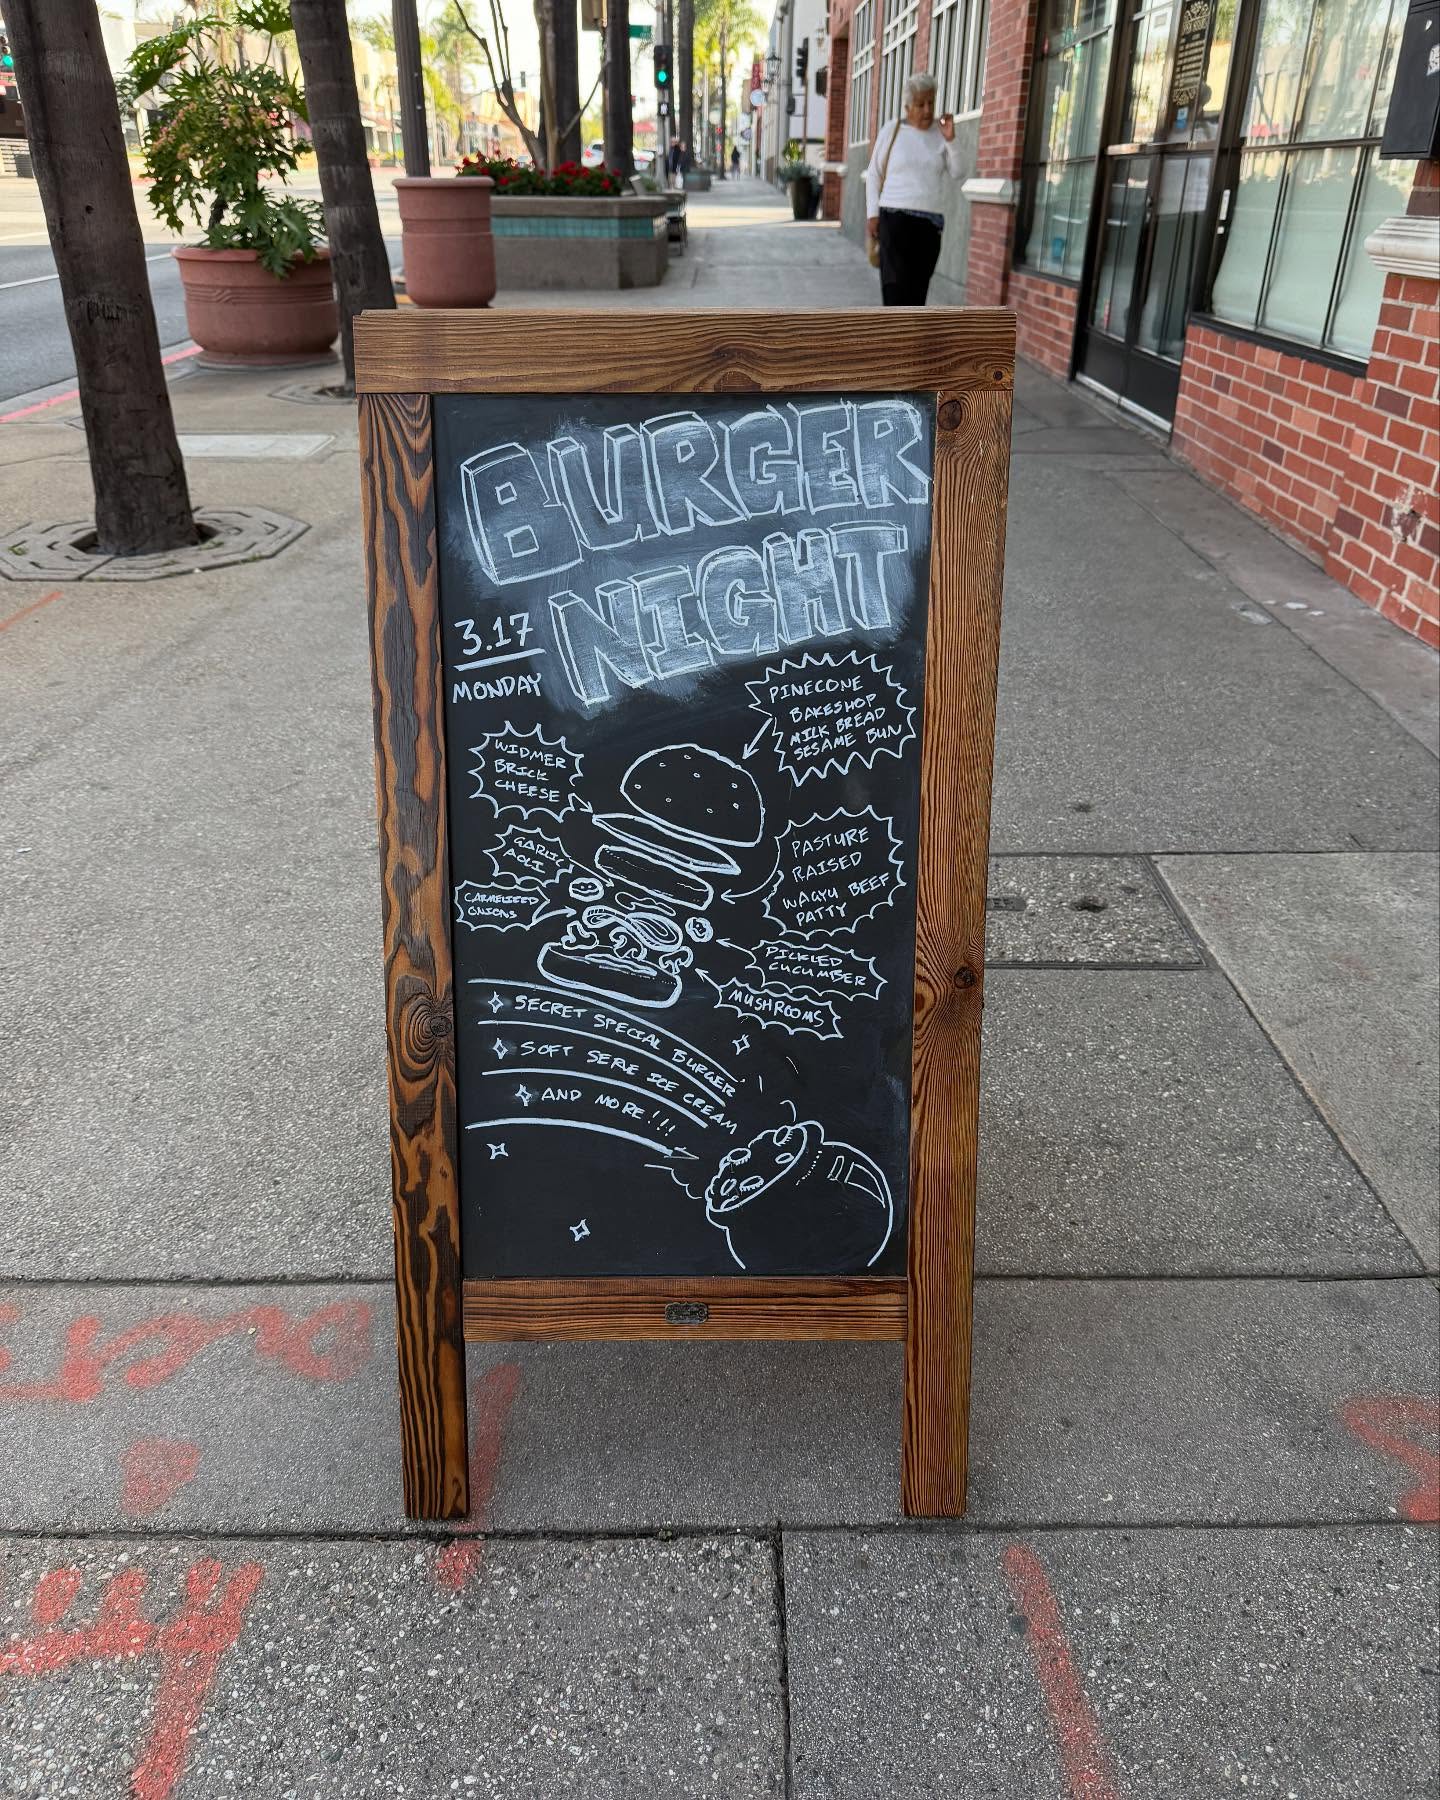 BURGER
NIGHT
3.17
MONDAY
PINECONE
BAKESHOP
MILK BREAD
SESAME BUN
WIDMER
BRICK
CHEESE
GARLIC
AOLI
PASTURE
RAISED
WAGYU BEEF
PATTY
CARMELIZED
ONIONS
PICKLED
CUCUMBER
MUSHROOMS
SECRET SPECIAL BURGER
SOFT SERVE ICE CREAM
AND MORE!!!